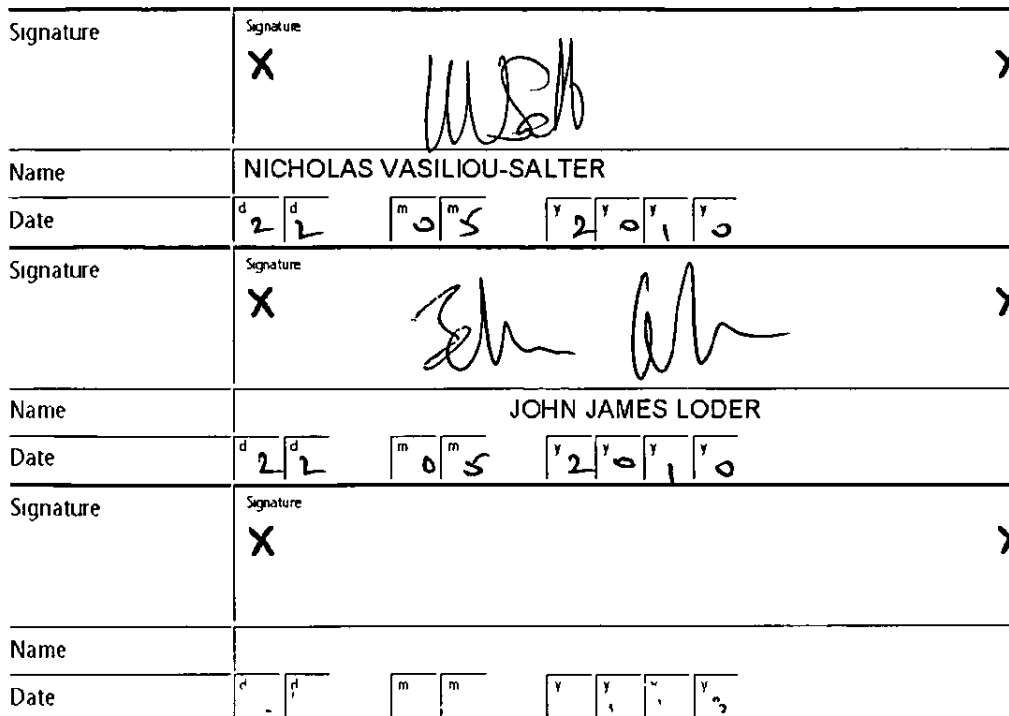 Signature Signature
X X
Name NICHOLAS VASILIOU-SALTER
Date d 2 d 2 m 0 m 5 y 2 y 0 y 1 y 0
Signature Signature
X X
Name JOHN JAMES LODER
Date d 2 d 2 m 0 m 5 y 2 y 0 y 1 y 0
Signature Signature
X X
Name
Date d d m m y y y y